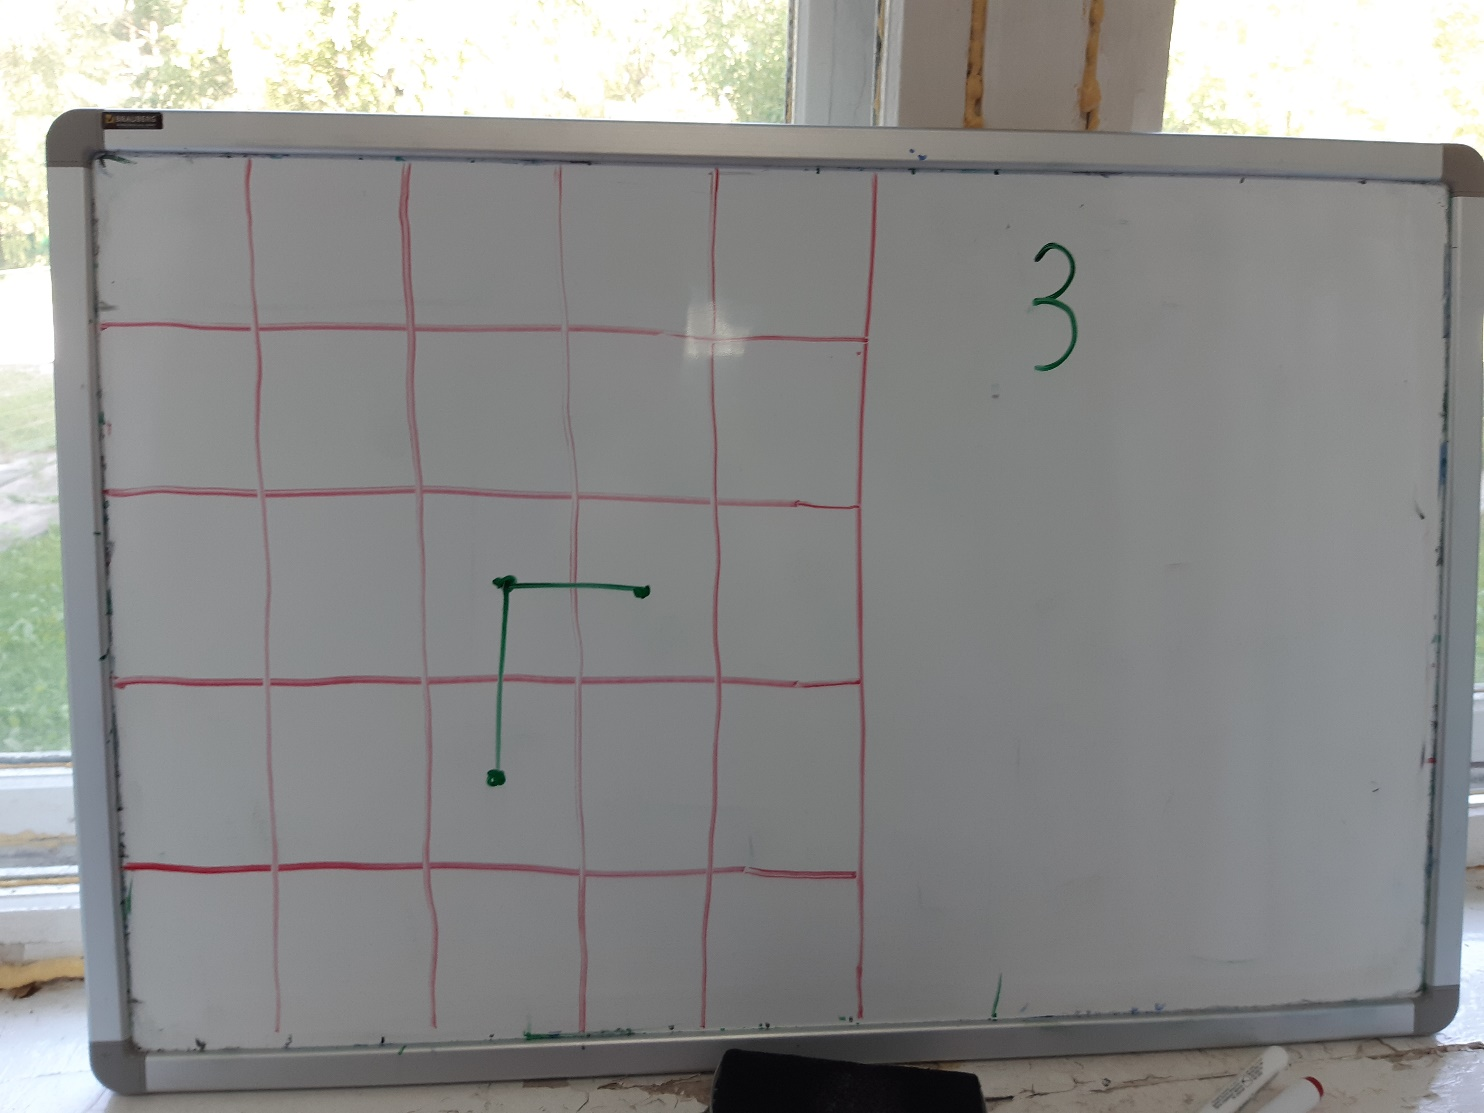 BRAUBERG
3